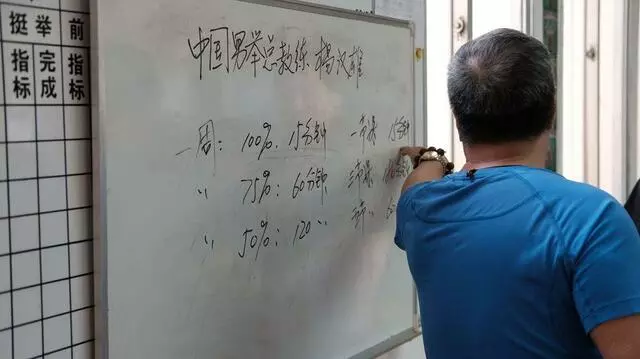 挺 举 前
指 完 指
标 成 标
中国男举总教练 杨汉雄
一周: 100%. 15分钟 一节课 15分钟
〃 75%: 60分钟 三节课
〃 50%: 120 〃